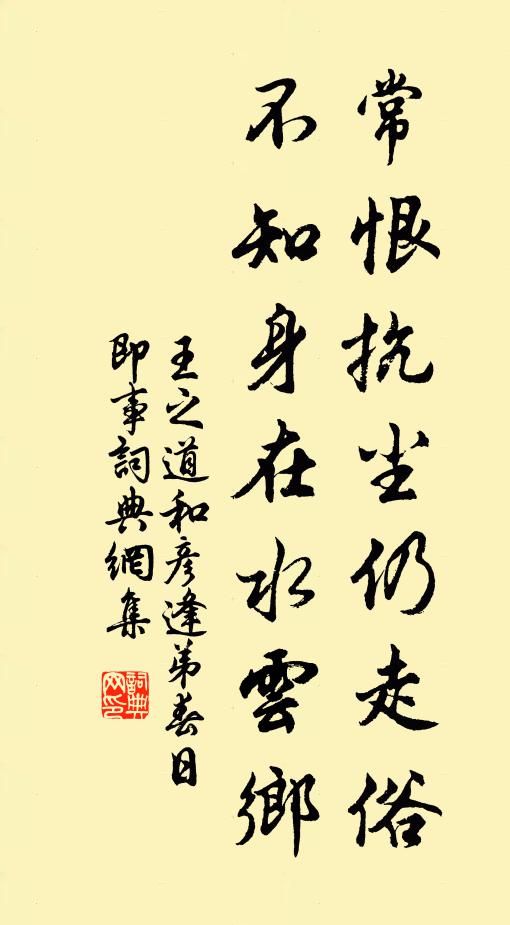 常恨抗尘仍走俗
不知身在水雲鄉
王之道和彦逢弟春日
即事詞典網集
詞典
网印